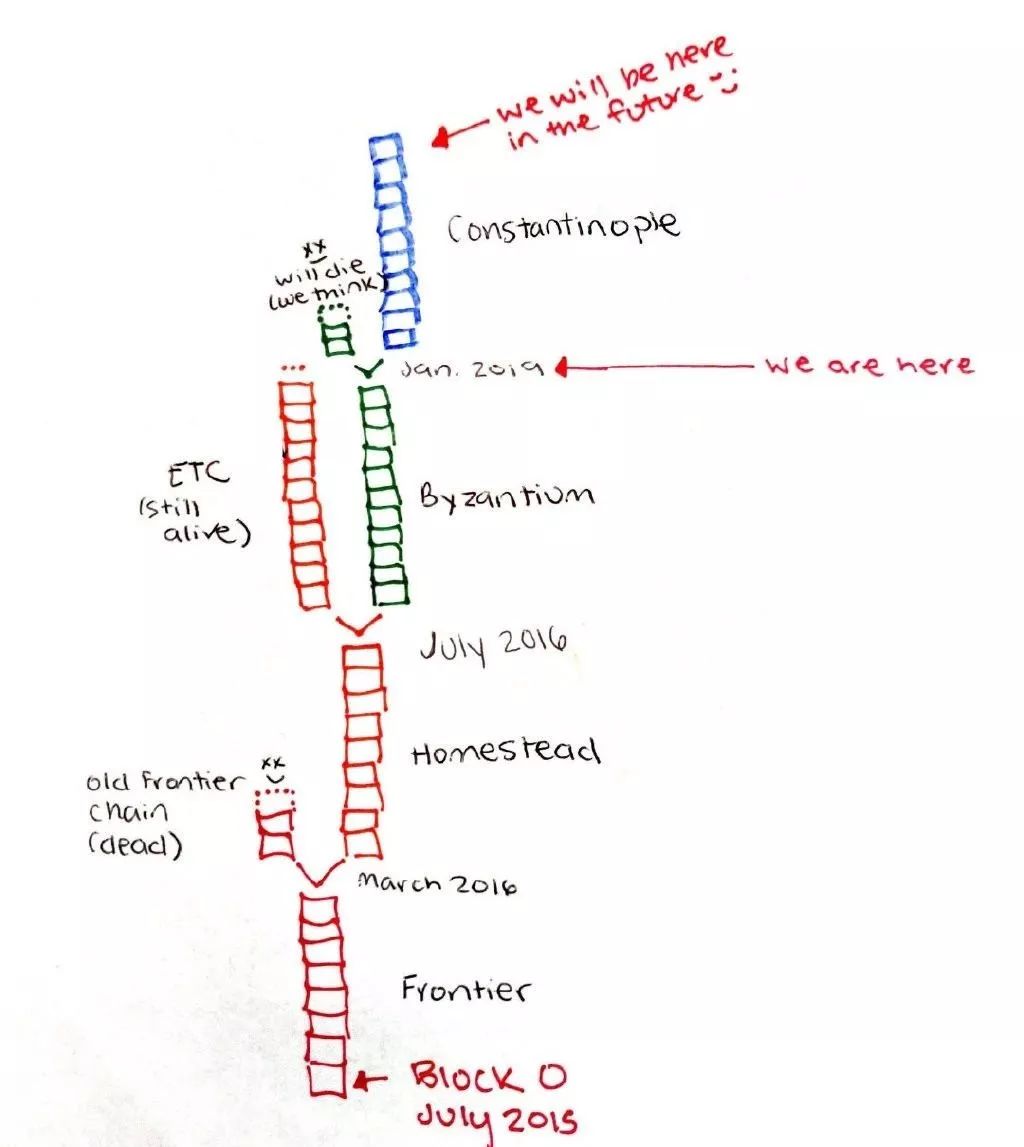 we will be here
in the future
Constantinople
xx
will die
(we think)
Jan. 2019
we are here
ETC
(still
alive)
Byzantium
July 2016
Homestead
xx
old Frontier
chain
(dead)
March 2016
Frontier
BLOCK 0
July 2015